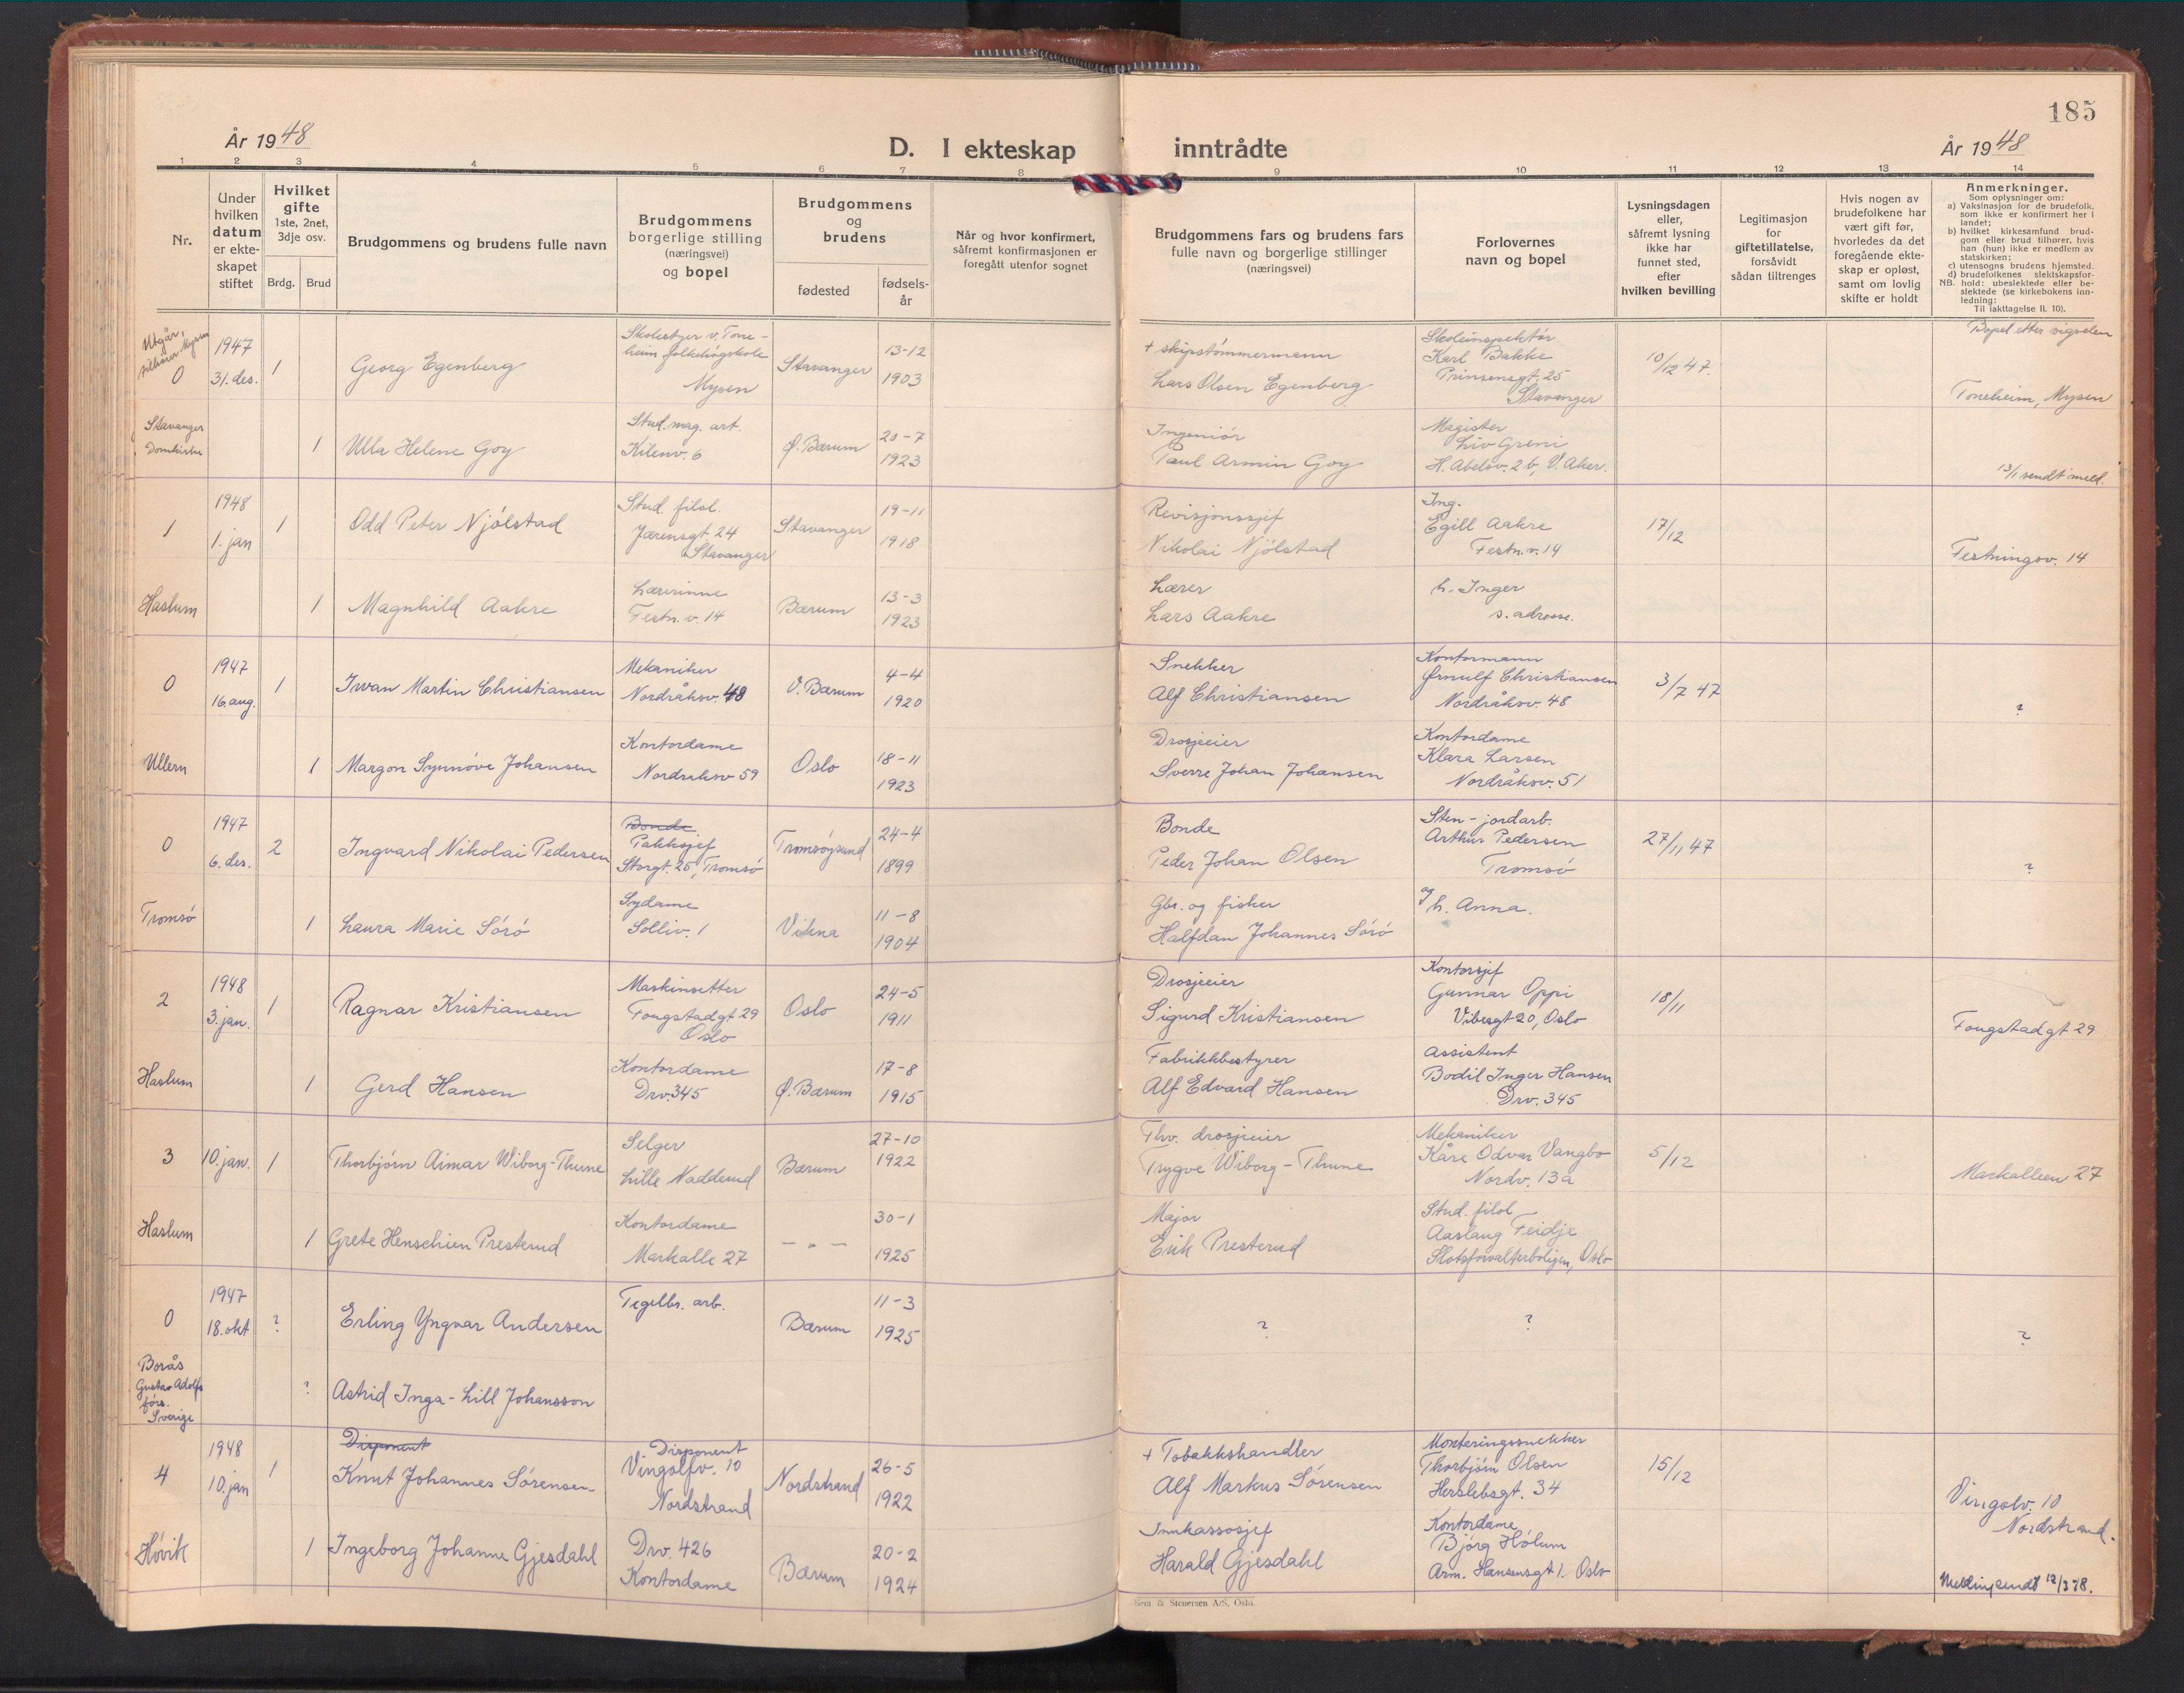 185
År 1948
D. I ekteskap inntrådte
År 1948
1 2 3 4 5 6 7 8 9 10 11 12 13 14
Nr.
Under hvilken datum er ekteskapet stiftet
Hvilket gifte 1ste, 2net, 3dje osv.
Brdg. Brud
Brudgommens og brudens fulle navn
Brudgommens borgerlige stilling (næringsvei) og bopel
Brudgommens og brudens
fødested
fødselsår
Når og hvor konfirmert, såfremt konfirmasjonen er foregått utenfor sognet
Brudgommens fars og brudens fars fulle navn og borgerlige stillinger (næringsvei)
Forlovernes navn og bopel
Lysningsdagen eller, såfremt lysning ikke har funnet sted, efter hvilken bevilling
Legitimasjon for giftetillatelse, forsåvidt sådan tiltrenges
Hvis nogen av brudefolkene har vært gift før, hvorledes da det foregående ekteskap er opløst, samt om lovlig skifte er holdt
Anmerkninger.
Som oplysninger om:
a) Vaksinasjon for de brudefolk, som ikke er konfirmert her i landet;
b) hvilket kirkesamfund brudgom eller brud tilhører, hvis han (hun) ikke er medlem av statskirken;
c) utensogns brudens hjemsted.
d) brudefolkenes slektskapsforhold: ubeslektede eller beslektede (se kirkebokens innledning:
NB.
Til iakttagelse II. 10).
Utgår, tilhører Mysen
0 1947 31. des. 1 Georg Egenberg
Skolestyer v. Toneheim folkehögskole Mysen
Stavanger 13-12 1903
+ skipstömmermann Lars Olsen Egenberg
Skoleinspektör Karl Bakke Prinsensgt. 25 Stavanger
10/12 47.
Bopel etter vigselen
Toneheim, Mysen
Stavanger Domkirke 1 Ulla Helene Goy
Stud. mag. art. Kilenv. 6
Ø. Bærum 20-7 1923
Ingeniör Paul Armin Goy
Magister Liv Greni H. Abelsv. 2 b, V. Aker.
13/1 sendt meld.
1 1948 1. jan 1 Odd Peter Njölstad
Stud. filol. Jærensgt. 24 Stavanger
Stavanger 19-11 1918
Revisjonssjef Nikolai Njölstad
Ing. Egill Aakre Festn. v. 14
17/12
Festningsv. 14
Haslum 1 Magnhild Aakre
Lærerinne Festn. v. 14
Bærum 13-3 1923
Lærer Lars Aakre
h. Inger s. adresse.
0 1947 16. aug. 1 Ivan Martin Christiansen
Mekaniker Nordråksv. 48
V. Bærum 4-4 1920
Snekker Alf Christiansen
Kontormann Ørnulf Christiansen Nordråksv. 48
3/7 47
?
Ullern 1 Margon Synnöve Johansen
Kontordame Nordraksv 59
Oslo 18-11 1923
Drosjeeier Sverre Johan Johansen
Kontordame Klara Larsen Nordråksv. 51
0 1947 6. des. 2 Ingvard Nikolai Pedersen
Bonde Pakksjef Storgt. 25, Tromsö
Tromsöysund 24-4 1899
Bonde Peder Johan Olsen
Sten- jordarb. Arthur Pedersen Tromsö
27/11 47
?
Tromsö 1 Laura Marie Sörö
Sydame Solliv. 1
Vikna 11-8 1904
Gbr. og fisker Halfdan Johannes Sörö
og h. Anna.
2 1948 3. jan. 1 Ragnar Kristiansen
Maskinsetter Fougstadgt 29 Oslo
Oslo 24-5 1911
Drosjeeier Sigurd Kristiansen
Kontorsjef Gunnar Oppi Vibesgt 20, Oslo
18/11
Fougstadgt 29
Haslum 1 Gerd Hansen
Kontordame Drv. 345
Ø. Bærum 17-8 1915
Fabrikkbestyrer Alf Edvard Hansen
Assistent Bodil Inger Hansen Drv. 345
3 10. jan. 1 Thorbjörn Aimar Wiborg-Thune
Selger Lille Nadderud
Bærum 27-10 1922
Thv. drosjeeier Trygve Wiborg-Thune
Mekaniker Kåre Odvar Vangbo Nordv. 13a
5/12
Markalleen 27
Haslum 1 Grete Henschien Presterud
Kontordame Markalle 27
— " — 30-1 1925
Major Erik Presterud
Stud. filol Aaslaug Feidje Slotsforvalterboligen, Oslo
0 1947 18. okt ? Erling Yngvar Andersen
Tegelbr. arb.
Bærum 11-3 1925
?
?
?
Borås Gustav Adolfs förs. Sverige ? Astrid Inga-Lill Johansson
4 1948 10. jan 1 Disponent Knut Johannes Sörensen
Disponent Vingolfv. 10 Nordstrand
Nordstrand 26-5 1922
+ Tobakkshandler Alf Markus Sörensen
Monteringssnekker Thorbjörn Olsen Herslebsgt. 34
15/12
Vingolv. 10 Nordstrand.
Hövik 1 Ingeborg Johanne Gjesdahl
Drv. 426 Kontordame
Bærum 20-2 1924
Innkassosjef Harald Gjesdahl
Kontordame Björg Hölum Arm. Hansensgt 1. Oslo
Melding sendt 12/3 78.
Grøn & Stenersen A/S, Oslo.